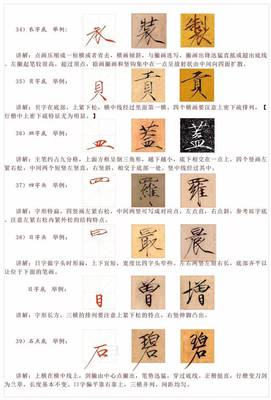 34）衣字底 举例： 衣 裝 製
讲解：点画压缩成一短横或者省去，横画倾斜，与撇画连写，撇画出锋迅猛直抵或超出底线，
左撇起笔较很高，超过顶点，捺画撇画和竖钩集中在一点呈放射状由中间向四面扩散。
35）贝字底 举例： 貝 貢 貢
讲解：贝字在底部，上紧下松，横中线经过里面第一横，四个横要注意上密下疏排列。【
行楷中上密下疏特征尤为明显。】
36）皿字底 举例： 皿 蓋 蓋
讲解：主笔约占九分格，上面方框呈倒三角形，越下越小，底下相交在一点上，四个竖画左
紧右松，中间两个短竖左竖直，右竖斜，相交于底部一处，竖中线经过其中。
37）四字头 举例： 罒 羅 羅
讲解：字形特扁，四竖画左紧右松，中间两竖可写成对应点，左点直，右点斜，参考如皿字
底，注意左紧右松内紧外松的结构特点。
38）日字头 举例： 日 最 晨
讲解：日字做字头时形扁，上下宜短，宽度比四字头窄些，左右两竖左短右长，底部各平以
让位于下面的笔画。
日字底 举例： 日 曾 增
讲解：字形长方，三横的排列要注意上紧下松的特点，右竖伸脚凸出。
39）石 举例： 石 碧 碧
讲解：上横在横中线上，剑撇由中心点撇出，笔势迅猛，穿过底线，正楷倔直，行楷变刀剑
为兰草，长度基本不变。口字偏平靠右靠上，三横并列，间距均匀。